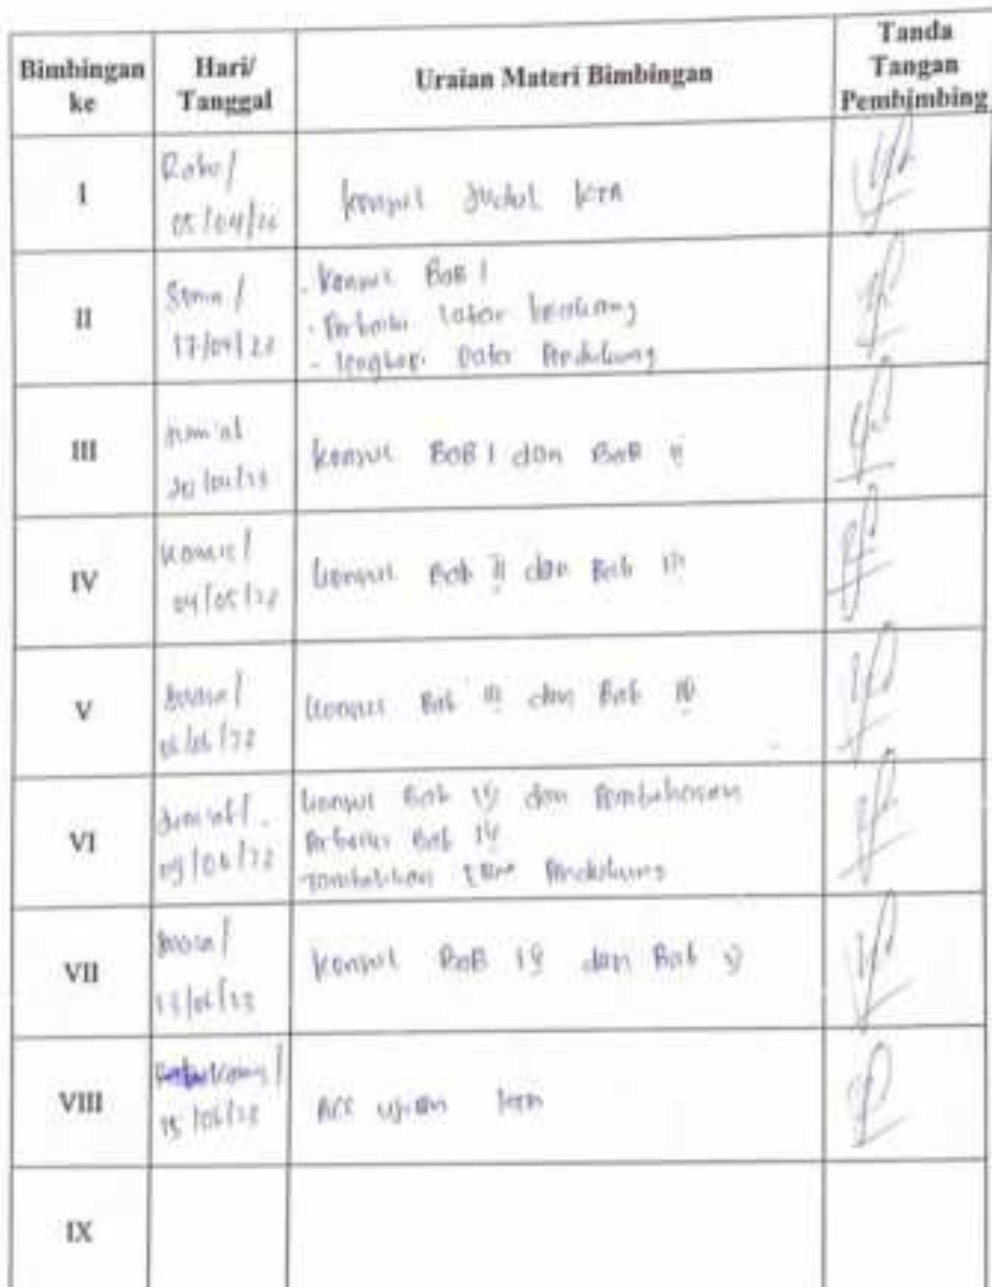 Bimbingan ke
Hari/ Tanggal
Uraian Materi Bimbingan
Tanda Tangan Pembimbing
I
Rabu/
05/04/23
konsul Judul KTA
II
Senin/
17/04/23
- Konsul BAB I
- Perbaiki latar belakang
- lengkapi Data Pendukung
III
Jum'at
konsul BAB I dan BAB II
IV
Kamis/
04/05/23
konsul Bab II dan Bab III
V
Selasa/
06/06/23
konsul Bab III dan Bab IV
VI
Jum'at/
09/06/23
konsul Bab IV dan Pembahasan
Bab IV
Tambahkan Pendukung
VII
Selasa/
13/06/23
konsul BAB IV dan Bab V
VIII
Kamis/
15/06/23
ACC ujian KTA
IX